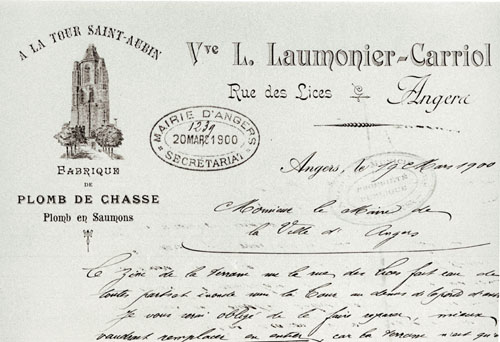 A LA TOUR SAINT-AUBIN
FABRIQUE
DE
PLOMB DE CHASSE
Plomb en Saumons
Vve L. Laumonier-Carriol
Rue des Lices
Angers
MAIRIE D'ANGERS
1239
20 MARS 1900
SECRÉTARIAT
Angers, le 19 Mars 1900
PROPRIÉTÉ
PUBLIQUE
Monsieur le Maire de
la Ville d'Angers
Le Zinc de la terrasse sur la rue des Lices fait eau de
toutes parts et inonde la Tour au
Je vous serai obligé de le faire réparer, mieux
vaudrait remplacer en entier, car la terrasse n'est qu'